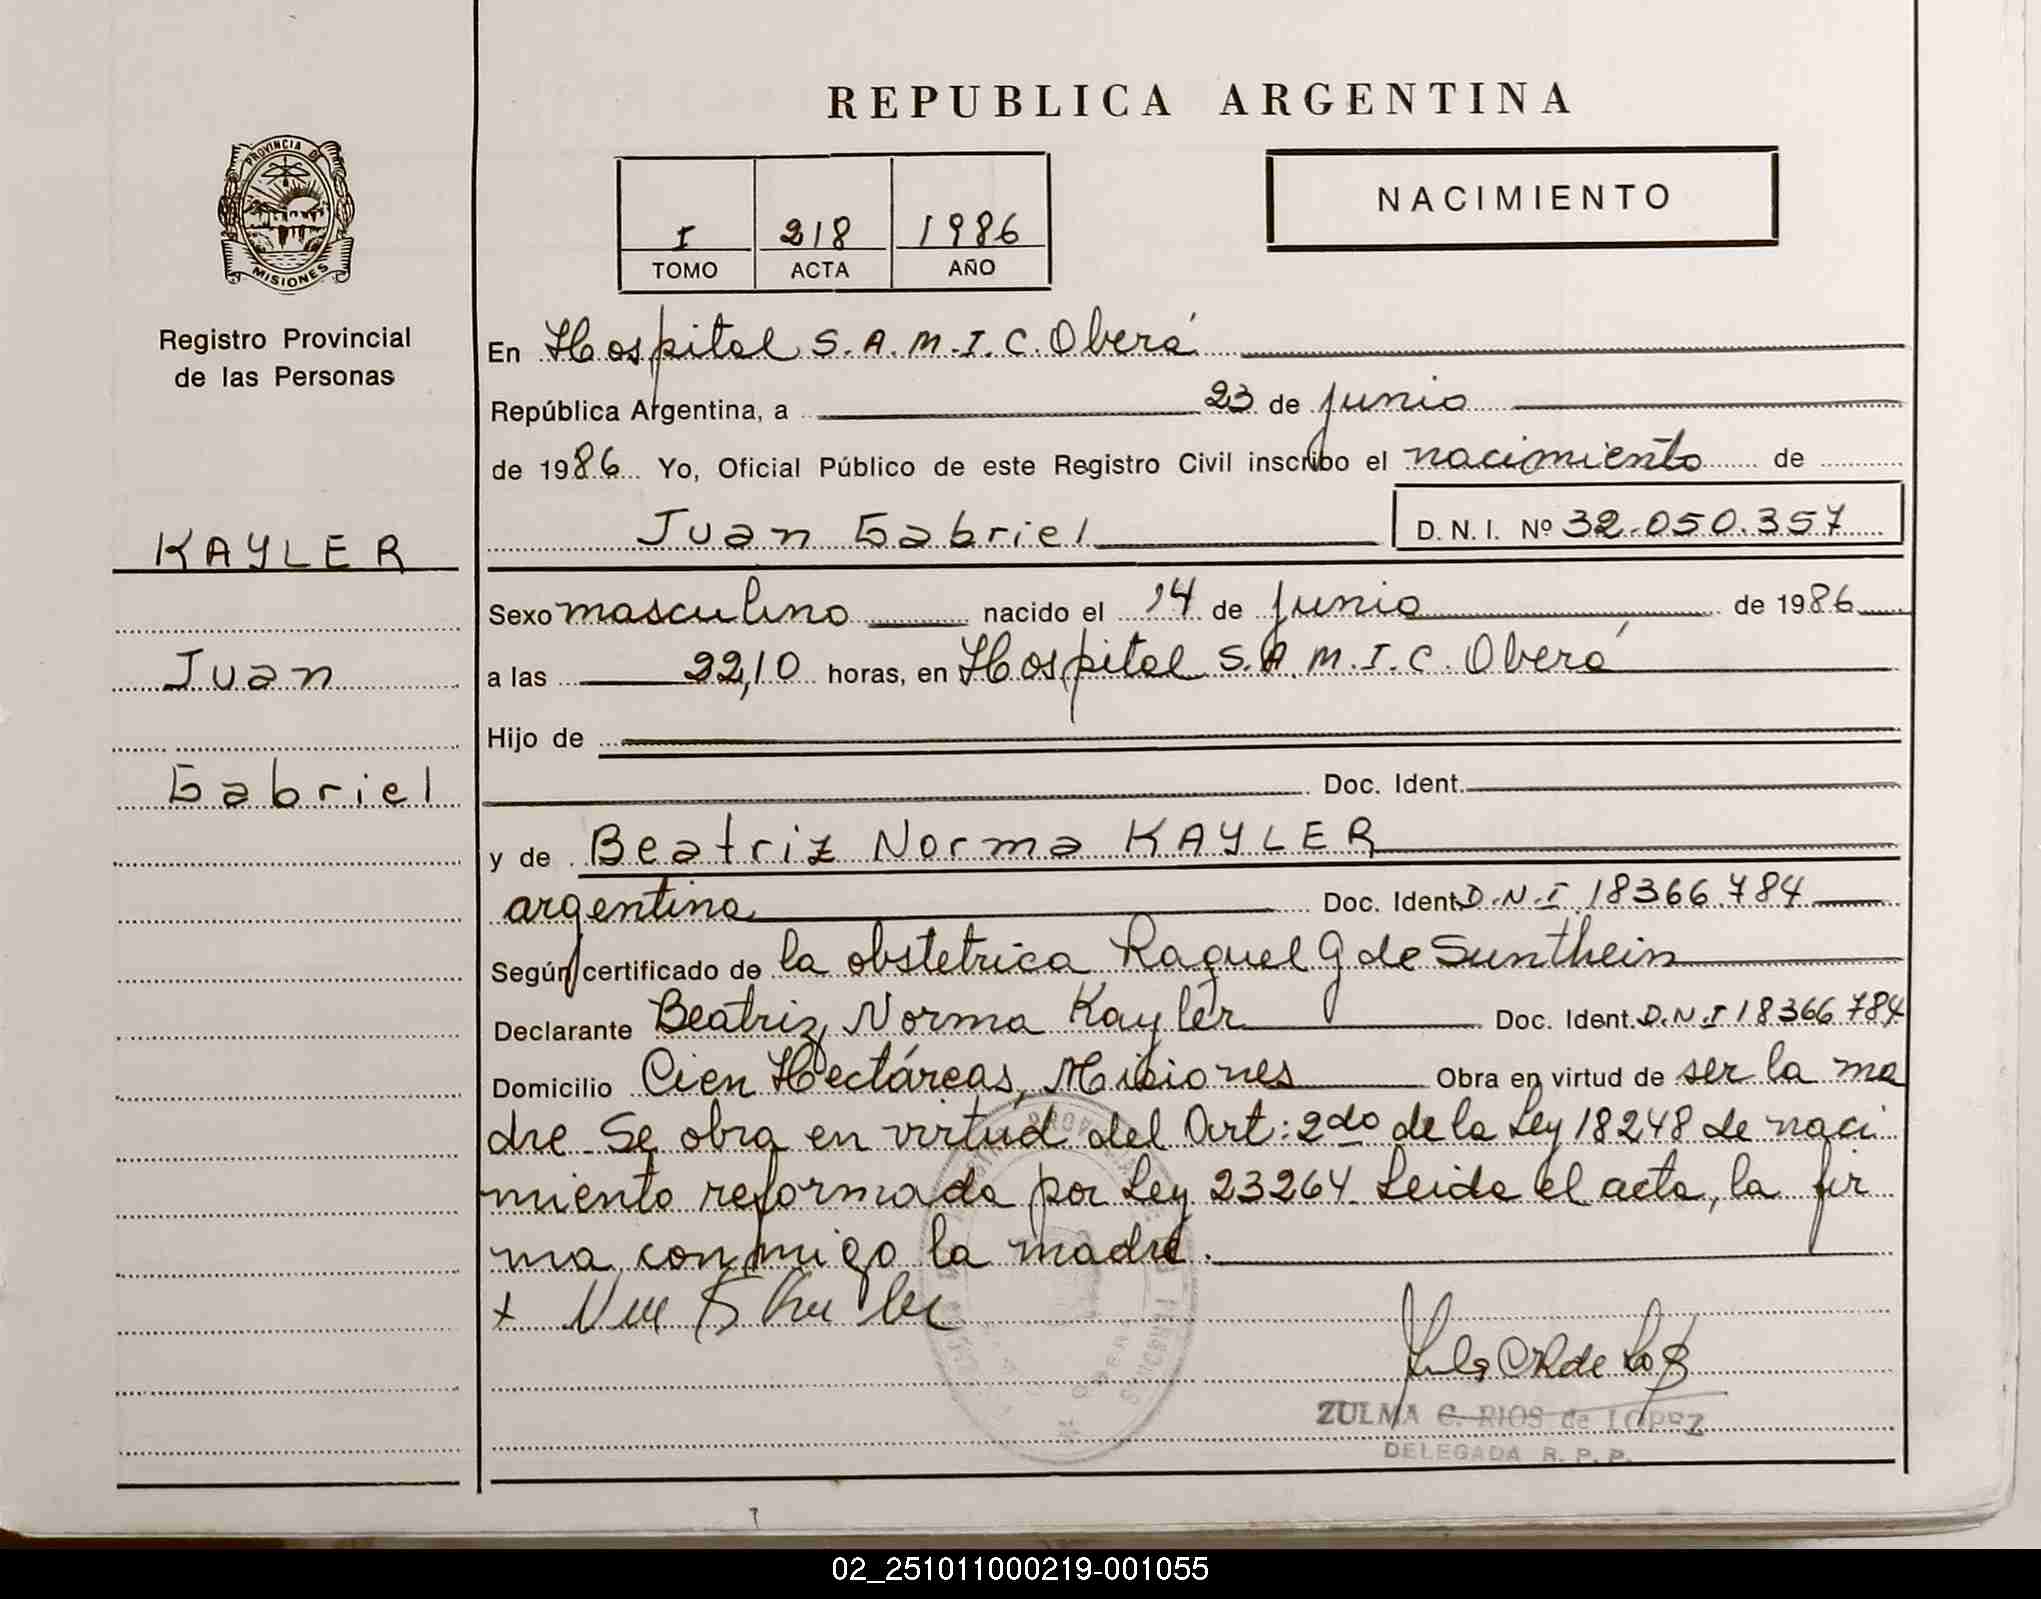 REPUBLICA ARGENTINA
PROVINCIA DE
MISIONES
Registro Provincial
de las Personas
I 218 1986
TOMO ACTA AÑO
NACIMIENTO
KAYLER
Juan
Gabriel
En Hospital S.A.M.I.C. Oberá
República Argentina, a 23 de junio
de 1986 Yo, Oficial Público de este Registro Civil inscribo el nacimiento de
Juan Gabriel D.N.I. Nº 32.050.357
Sexo masculino nacido el 14 de junio de 1986
a las 22,10 horas, en Hospital S.A.M.I.C. Oberá
Hijo de
Doc. Ident.
y de Beatriz Norma KAYLER
argentina Doc. Ident. D.N.I. 18366.784
Según certificado de la obstetrica Raquel G de Sunthein
Declarante Beatriz Norma Kayler Doc. Ident. D.N.I 18366.784
Domicilio Cien Hectáreas, Misiones Obra en virtud de ser la ma
dre Se obra en virtud del Art: 2do de la Ley 18248 de naci
miento reformada por Ley 23264 Leida el acta, la fir
ma conmigo la madre.
ZULMA C. RIOS de LOPEZ
DELEGADA R. P. P.
02_251011000219-001055